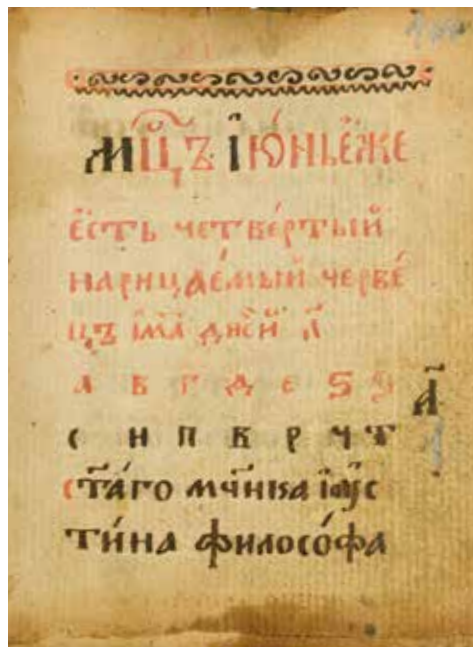 мⷭ҇цъ і҆ю́нь є҆́же
є҆́сть четве́ртый
нарица́емый черве́
цъ и҆́ма дні́й л҃
а в г д є ѕ з
с н п в р ч т
ст҃а́го мч҃ника і҆ꙋс
ти́на філосо́фа
а҃